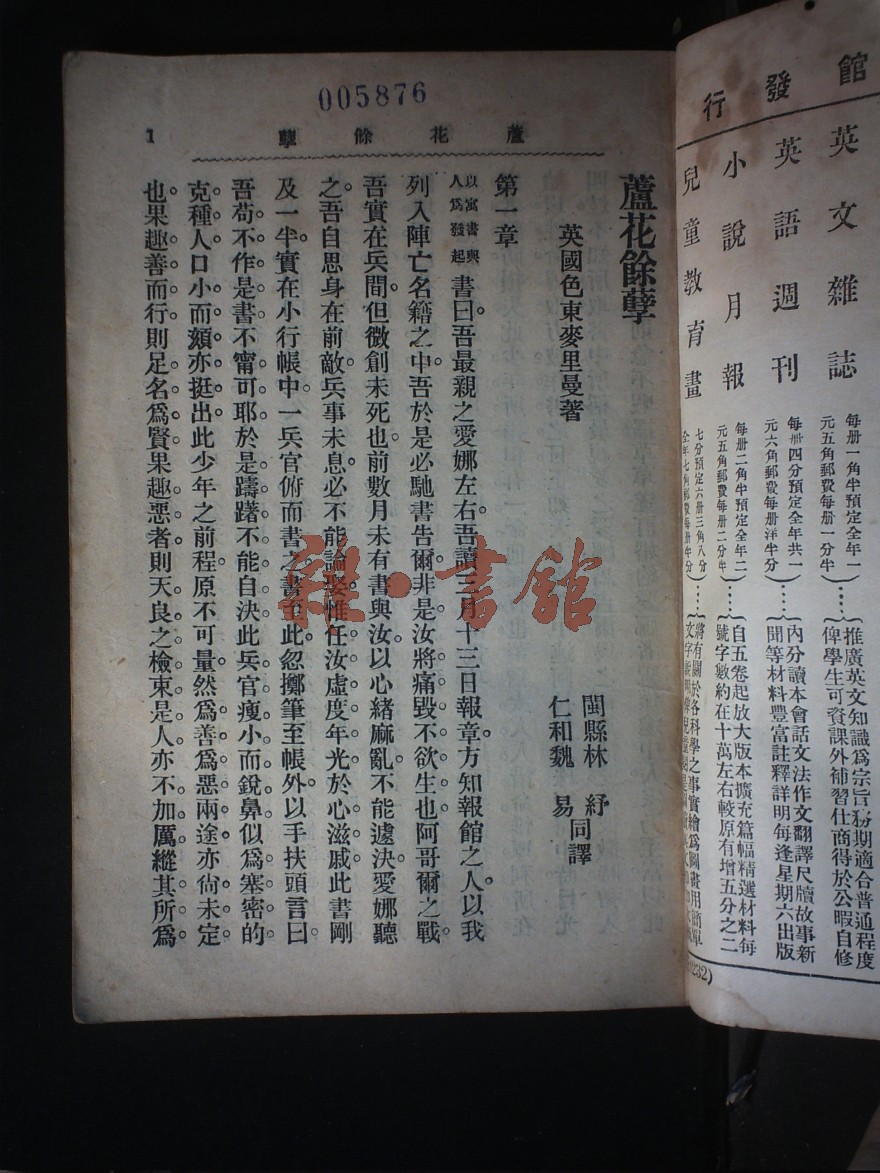 館發行
英文雜誌
每冊一角半預定全年一
元五角郵費每冊一分半
推廣英文知識為宗旨務期適合普通程度
俾學生可資課外補習仕商得於公暇自修
英語週刊
每冊四分預定全年共一
元六角郵費每冊洋半分
內分讀本會話文法作文翻譯尺牘故事新
聞等材料豐富註釋詳明每逢星期六出版
小說月報
每冊二角半預定全年二
元五角郵費每冊二分半
自五卷起放大版本擴充篇幅精選材料每
號字數約在十萬左右較原有增五分之二
兒童教育畫
七分預定六冊三角八分
全年七角郵費每冊半分
將有關於各科學之事實繪為圖畫用簡單
文字
232)
005876
蘆花餘孽
1
蘆花餘孽
英國色東麥里曼著
閩縣林 紓
仁和魏 易
同譯
第一章
以寓書與
人為發起
書曰。吾最親之愛娜左右。吾讀三月十三日報章。方知報館之人。以我
列入陣亡名籍之中。吾於是必馳書告爾。非是汝將痛毀不欲生也。阿哥爾之戰。
吾實在兵間。但微創未死也。前數月未有書與汝。以心緒麻亂。不能遽決。愛娜聽
之。吾自思身在前敵。兵事未息。必不能論娶。惟任汝虛度年光。於心滋戚。此書剛
及一半。實在小行帳中。一兵官俯而書之。書至此。忽擲筆至帳外。以手扶頭言曰。
吾苟不作是書。不甯可耶。於是躊躇不能自決。此兵官瘦小而銳鼻。似為塞密的
克種人。口小而頦亦挺出。此少年之前程。原不可量。然為善為惡兩途。亦尚未定
也。果趣善而行。則足名為賢。果趣惡者。則天良之檢束。是人亦不加厲。縱其所為。
雜·書館